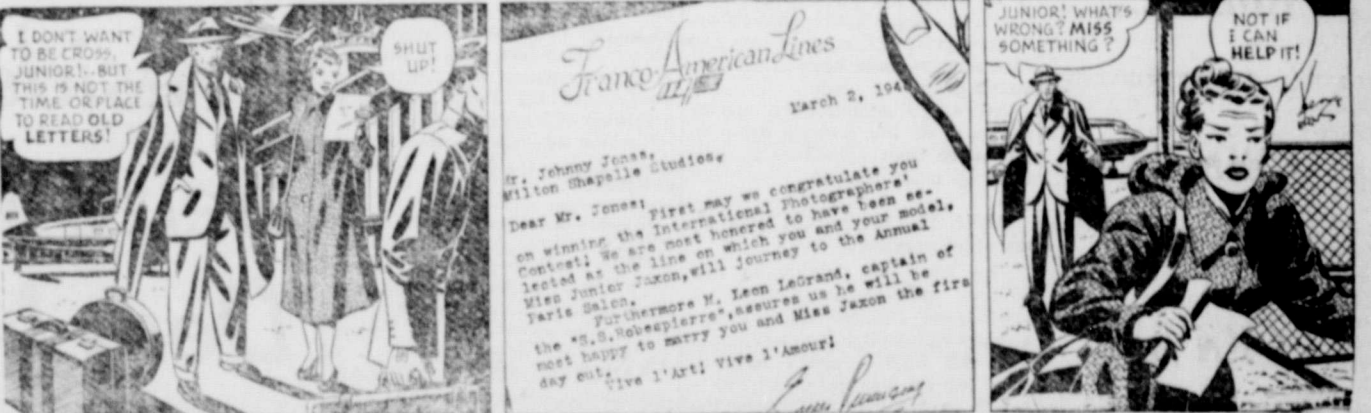 I DON'T WANT
TO BE CROSS,
JUNIOR!..BUT
THIS IS NOT THE
TIME OR PLACE
TO READ OLD
LETTERS!
SHUT
UP!
Franco-American Lines
March 2, 194
Mr. Johnny Jones,
Milton Shapelle Studios,
Dear Mr. Jones:
First may we congratulate you
on winning the International Photographers'
Contest! We are most honored to have been se-
lected as the line on which you and your model,
Miss Junior Jaxon,will journey to the Annual
Paris Salon.
Furthermore M. Leon LeGrand, captain of
the "S.S.Robespierre",assures us he will be
most happy to marry you and Miss Jaxon the firs
day out.
Vive l'Art! Vive l'Amour!
JUNIOR! WHAT'S
WRONG? MISS
SOMETHING?
NOT IF
I CAN
HELP IT!